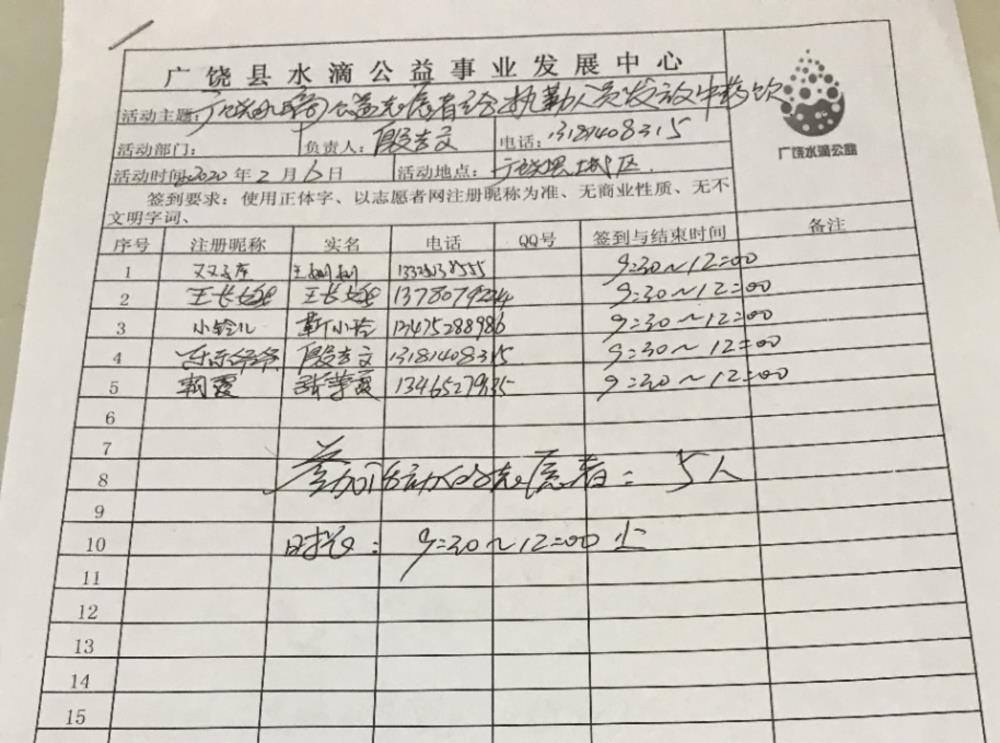 广饶县水滴公益事业发展中心
活动主题：广饶水滴公益志愿者给执勤人员发放中药饮
广饶水滴公益
活动部门： 负责人：殷孝文 电话：13181408315
活动时间2020年2月6日 活动地点：广饶县城区.
签到要求：使用正体字、以志愿者网注册昵称为准、无商业性质、无不
文明字词、
序号 注册昵称 实名 电话 QQ号 签到与结束时间 备注
1 9=30～12=00
2 王长娥 王长娥 9=30～12=00
3 小铃儿 靳小玲 13475288986 9=30～12=00
4 乐乐爷爷 殷孝文 13181408315 9=30～12=00
5 9=30～12=00
6
7
8 参加活动的志愿者：5人
9
10 时长：9=30～12=00止
11
12
13
14
15